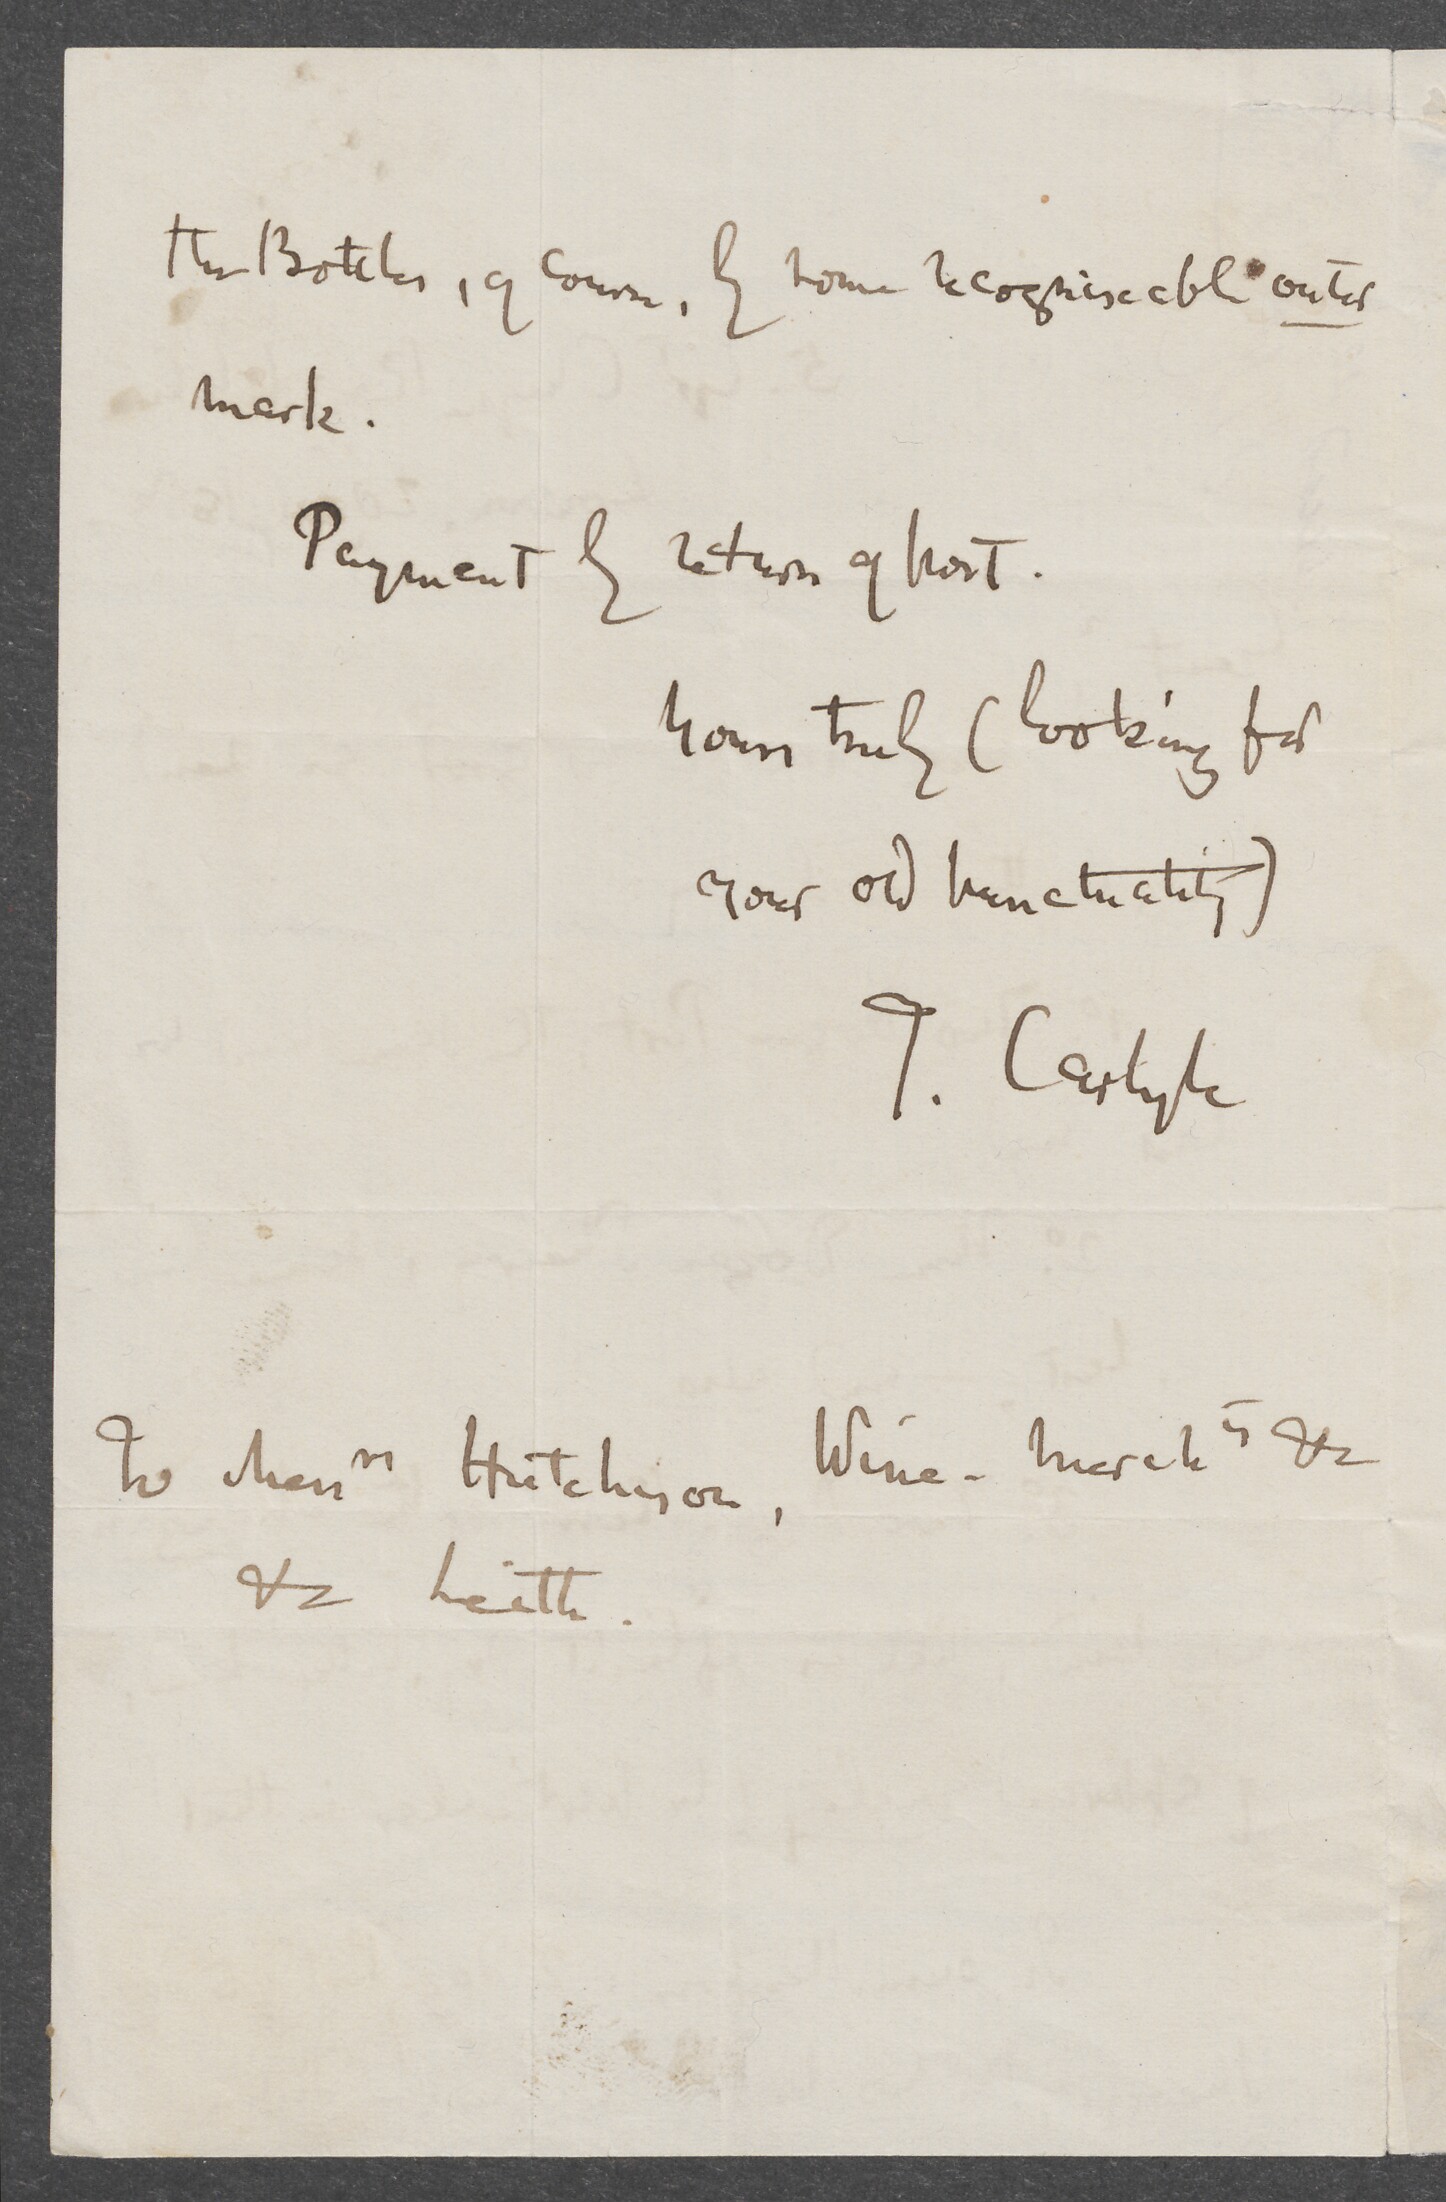 the Bottles, of course, by some recogniseable outer
mark.
Payment by return of post.
Yours truly (looking for
your old punctuality)
T. Carlyle
To Messrs Hutchison, Wine-Merchts &c
&c Leith.